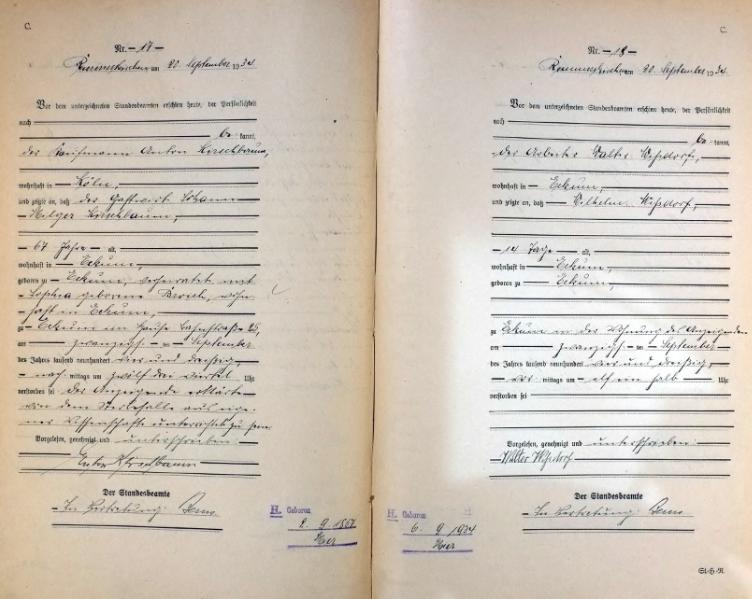 C.
Nr. 17
am 20 September 1934
Vor dem unterzeichneten Standesbeamten erschien heute, der Persönlichkeit
nach
be kannt,
der Kaufmann Anton Kirschbaum,
wohnhaft in Köln,
und zeigte an, daß der Gastwirt Johann
Hilger Kirschbaum,
67 Jahre alt,
wohnhaft in Eckum,
geboren zu Eckum, verheiratet mit
Sophia geborene wohn-
haft in Eckum,
zu Eckum im Hause Bahnstraße
am zwanzigsten September
des Jahres tausend neunhundert vier und dreißig,
nach mittags um zwölf drei viertel Uhr
verstorben sei der Anzeigende erklärte
von dem Sterbefalle aus eige-
ner Wissenschaft unterrichtet zu sein
Vorgelesen, genehmigt und unterschrieben:
Anton Kirschbaum
Der Standesbeamte
In Vertretung:
H. Geboren
2. 9. 1867
C.
Nr. 18
am 20. September 1934
Vor dem unterzeichneten Standesbeamten erschien heute, der Persönlichkeit
nach
be kannt,
der Arbeiter Walter Wißdorf,
wohnhaft in Eckum,
und zeigte an, daß Wilhelm Wißdorf,
14 Tage alt,
wohnhaft in Eckum,
geboren zu Eckum,
zu Eckum in der Wohnung des Anzeigenden
am zwanzigsten September
des Jahres tausend neunhundert vier und dreißig,
vor mittags um elf ein halb Uhr
verstorben sei
Vorgelesen, genehmigt und unterschrieben:
Walter Wißdorf
Der Standesbeamte
In Vertretung:
H. Geboren
6. 9. 1934
St.-H.-N.